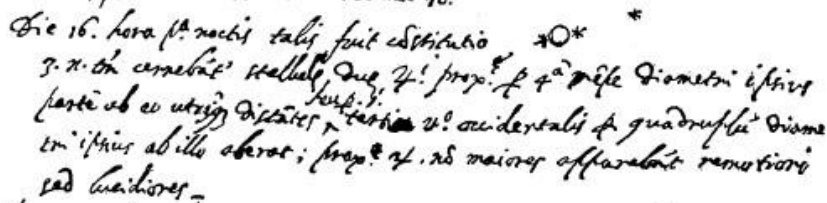 Die 16. hora pa. noctis talis fuit cōstitutio
3. n. tm cernebāt' stellulę, duę ♃i proxe. p 4ā mēse diametri ipsius
partē ab eo utrīq distātes, tertia uo. occidentalis p quadruplū diame
tri ipsius ab illo aberat; prope ♃. nō maiores apparebāt remotiori
sed lucidiores_